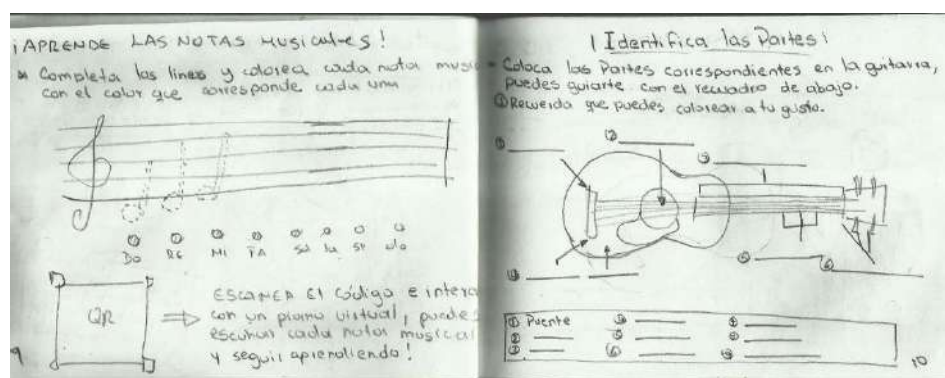 ¡APRENDE LAS NOTAS MUSICALES!
Completa las lineas y colorea cada nota music
con el color que corresponde cada una
Do RE Mi FA Sol la SI do
QR
ESCANEA El código e intera
con un piano virtual, puede
escuchar cada nota musical
y seguir aprendiendo!
9
¡Identifica las Partes!
Coloca las Partes correspondientes en la guitarra,
puedes guiarte con el recuadro de abajo.
Recuerda que puedes colorear a tu gusto.
① ② ③
④ ⑤ ⑥
① Puente
②
10